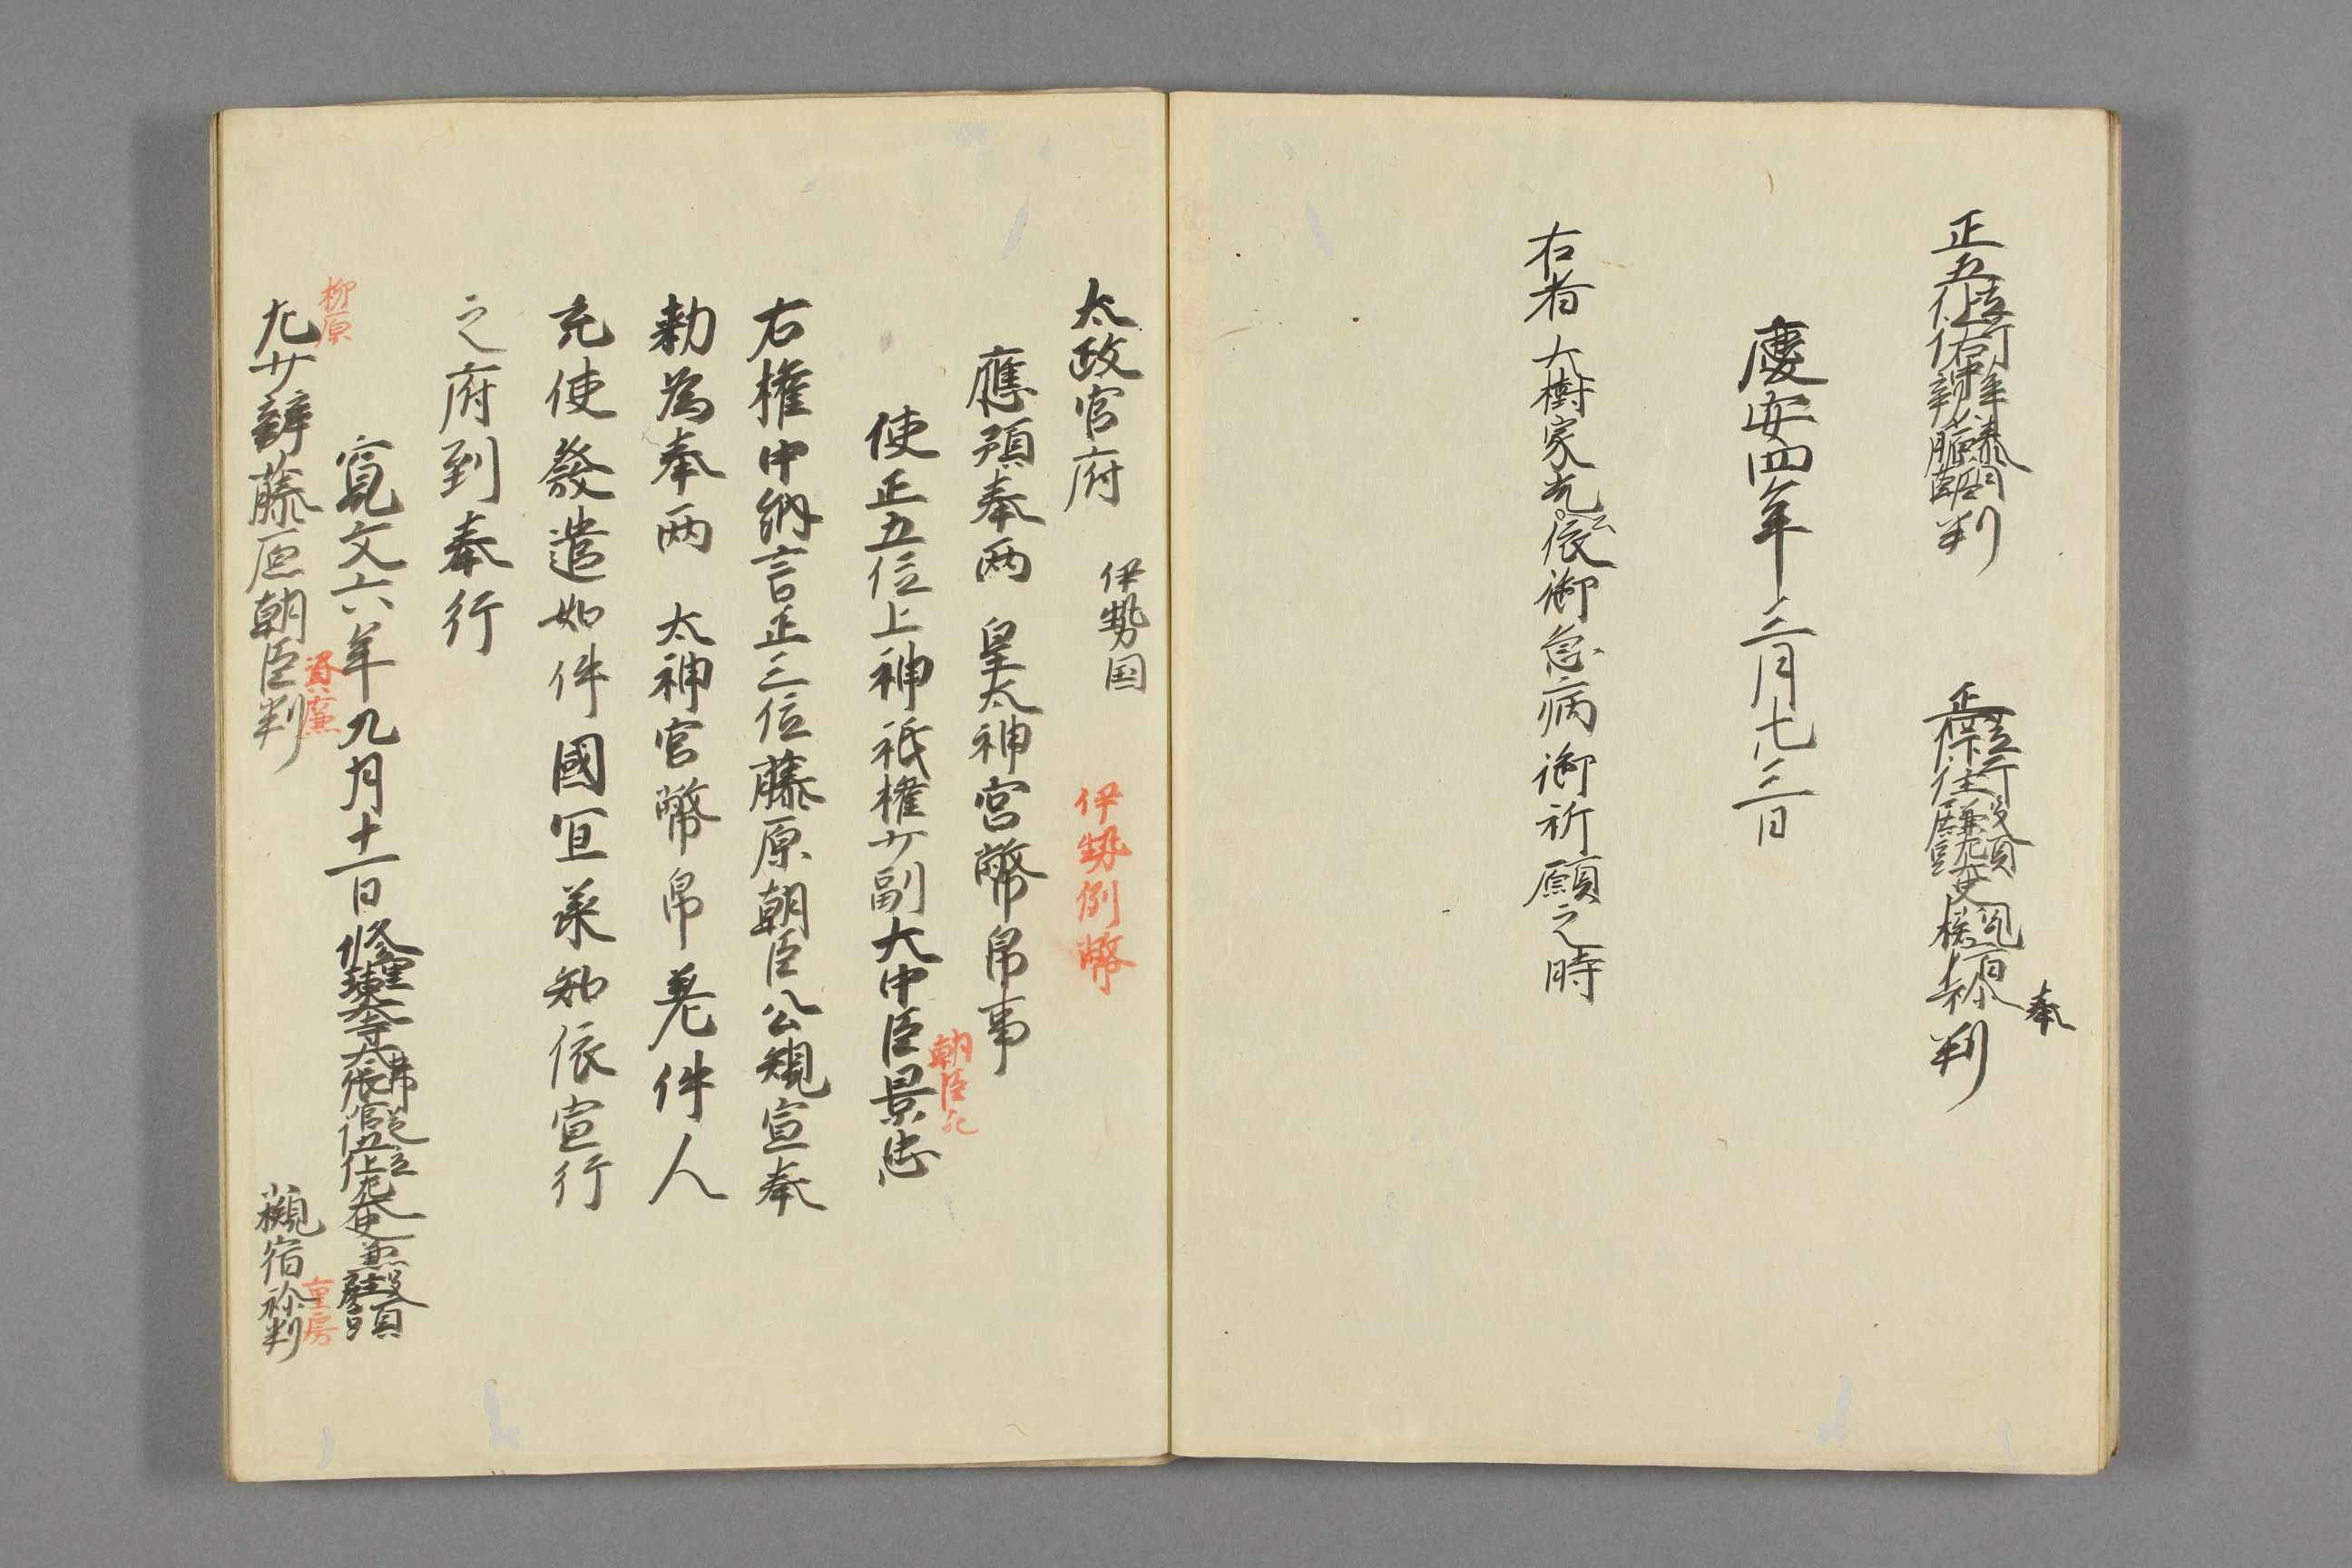 正五位上行右中辨藤原朝臣 判
正四位下行主殿頭兼左大史 小槻宿祢 判
奉
慶安四年三月七三日
右者 大樹家光公依御急病御祈願之時
太政官府 伊勢国
伊勢例幣
應預奉两 皇太神宮幣帛事
使正五位上神祇権少副大中臣景忠
朝臣
右権中納言正三位藤原朝臣公規宣奉
勅為奉两 太神宮幣帛差件人
充使發遣如件國宜羕知依宣行
之府到奉行
寛文六年九月十一日
修理東大寺大佛長官正五位上行左大史兼主殿頭
柳原
左少辨藤原朝臣判
資廉
小槻宿祢判
重房